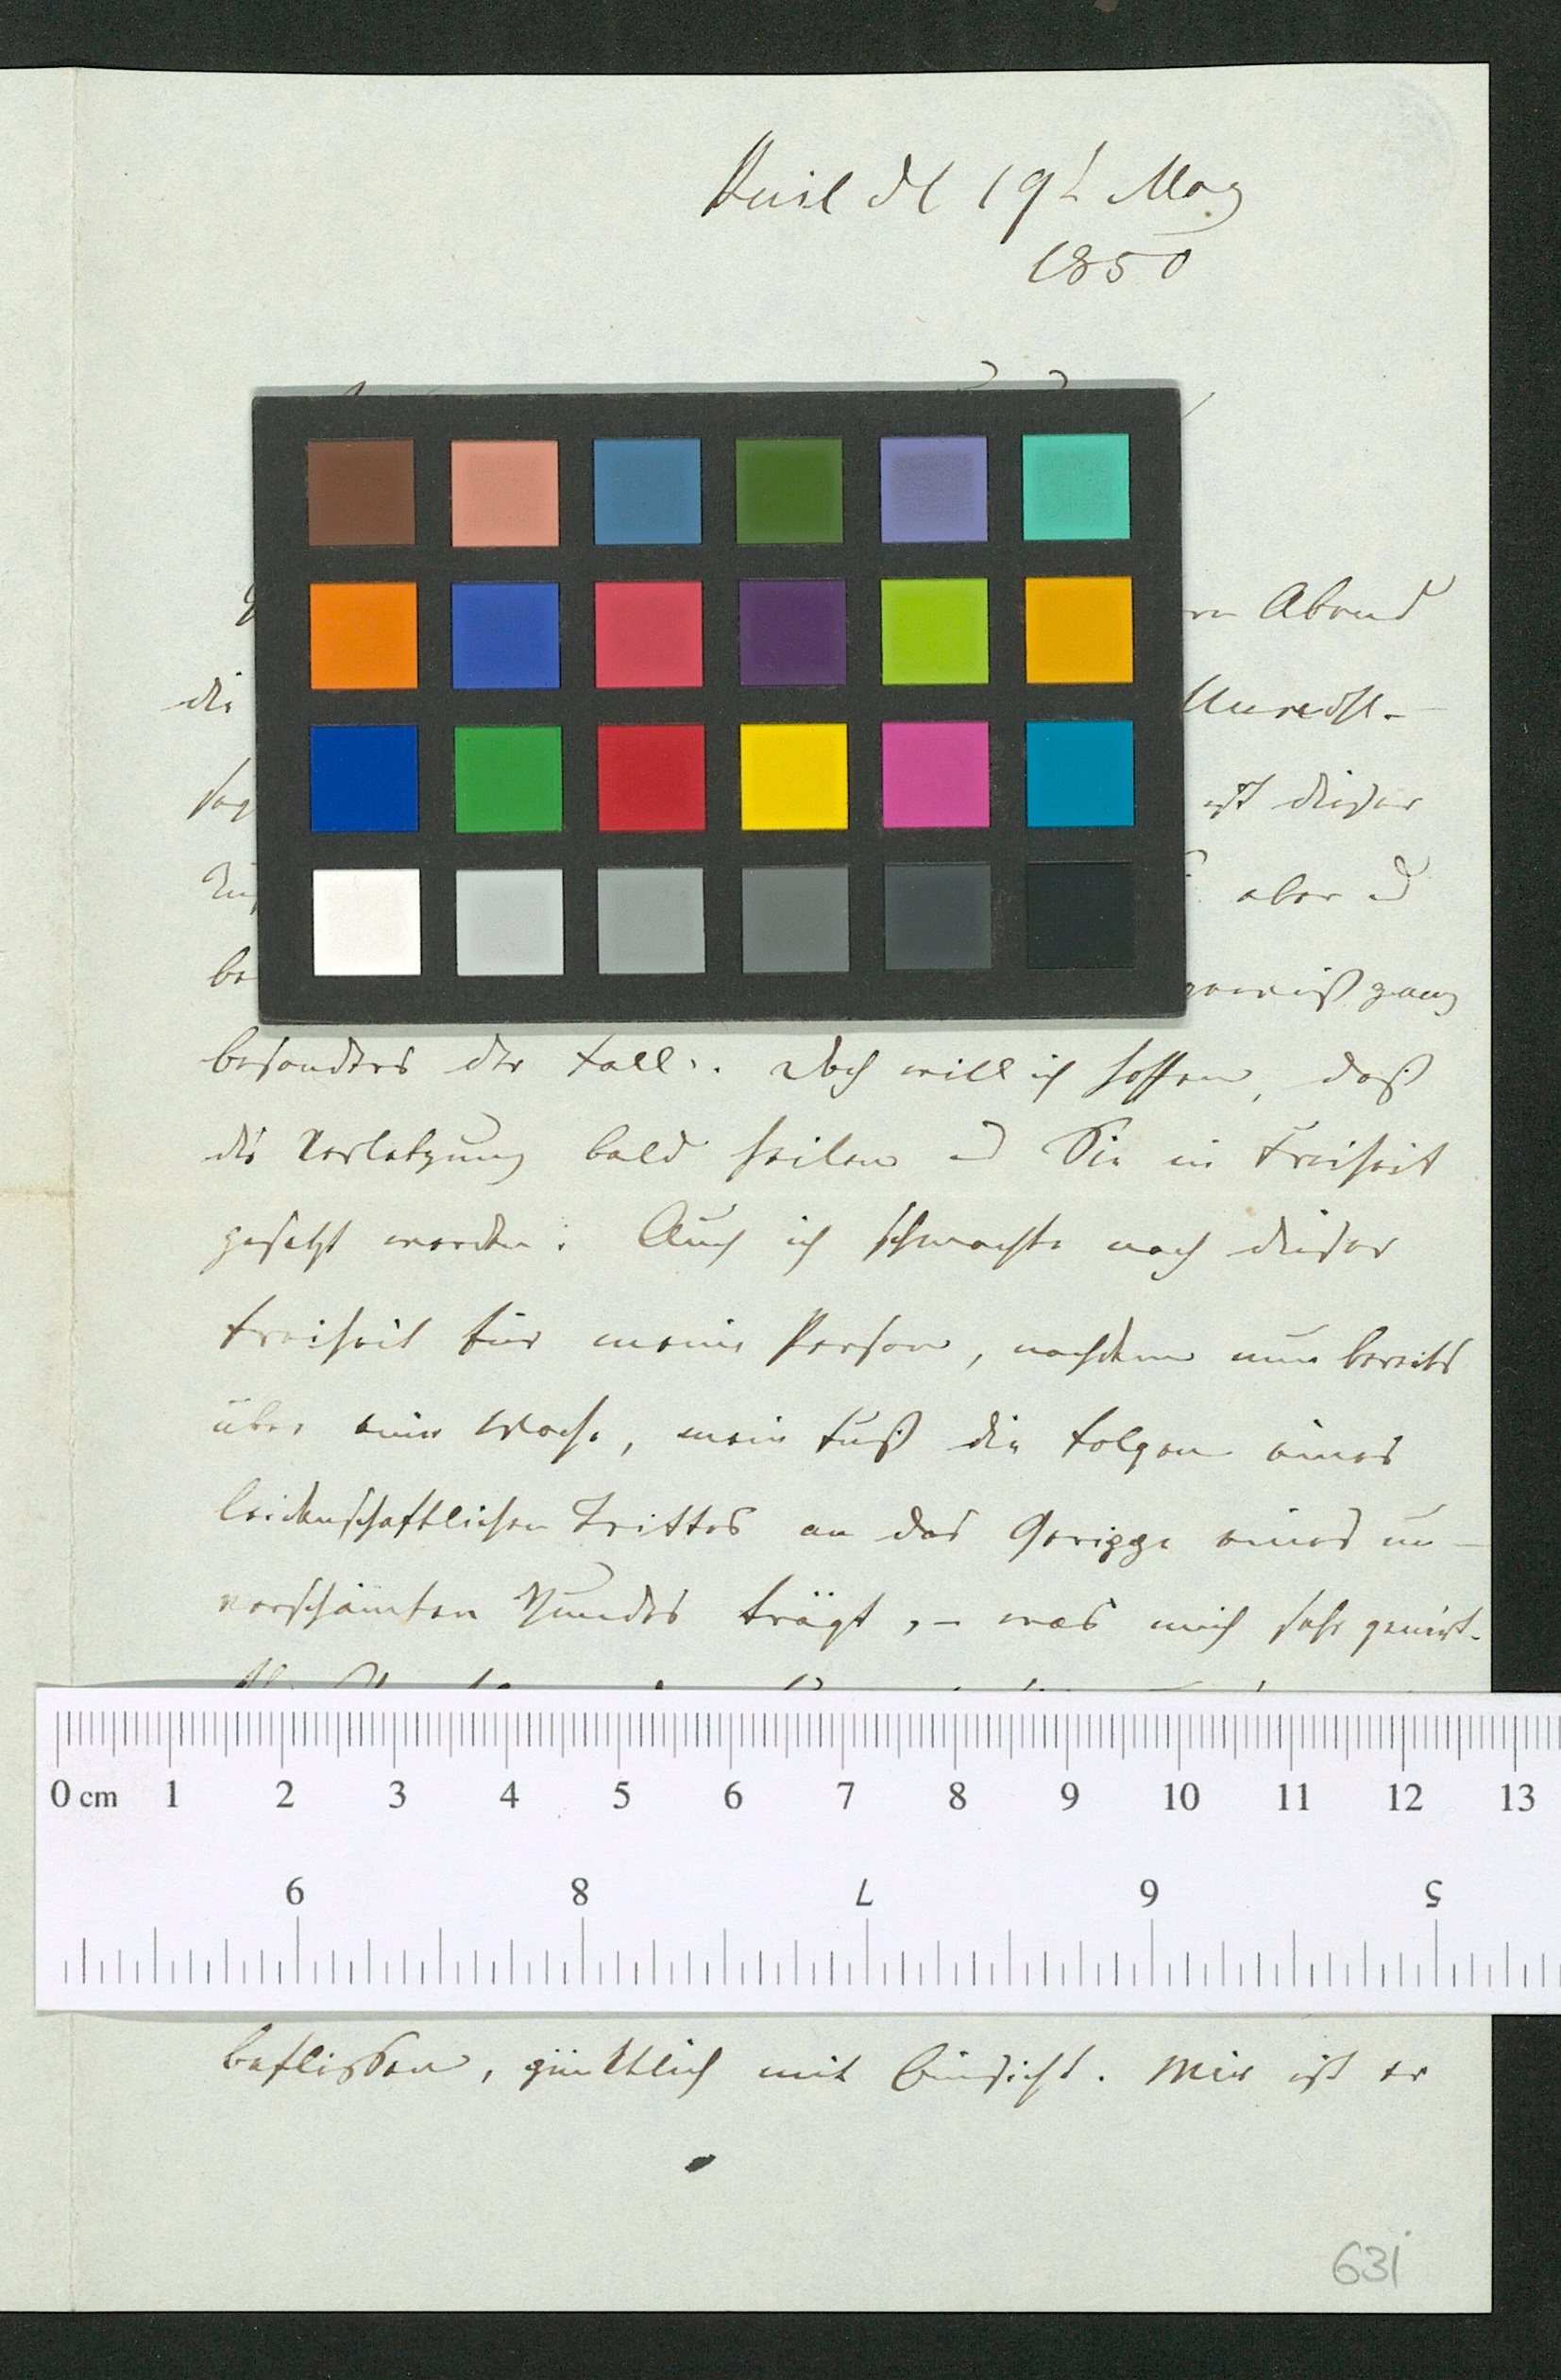 Kiel d 19t May
1850
Abend
die
Unredl.-
ist dieser
aber u
be
gewiß ganz
besonders der Fall. Doch will ich hoffen, daß
die Verletzung bald heilen u Sie in Freiheit
gesetzt werden. Auch ich schmachte nach dieser
Freiheit für meine Person, nachdem nun bereits
über eine Woche, mein Fuß die Folgen eines
leidenschaftlichen Trittes an das Gerippe eines un-
verschämten Hundes trägt, – was mich sehr genirt.
0 cm 1 2 3 4 5 6 7 8 9 10 11 12 13
9 8 7 6 5
beflissen, pünktlich mit Einsicht. Mir ist er
631